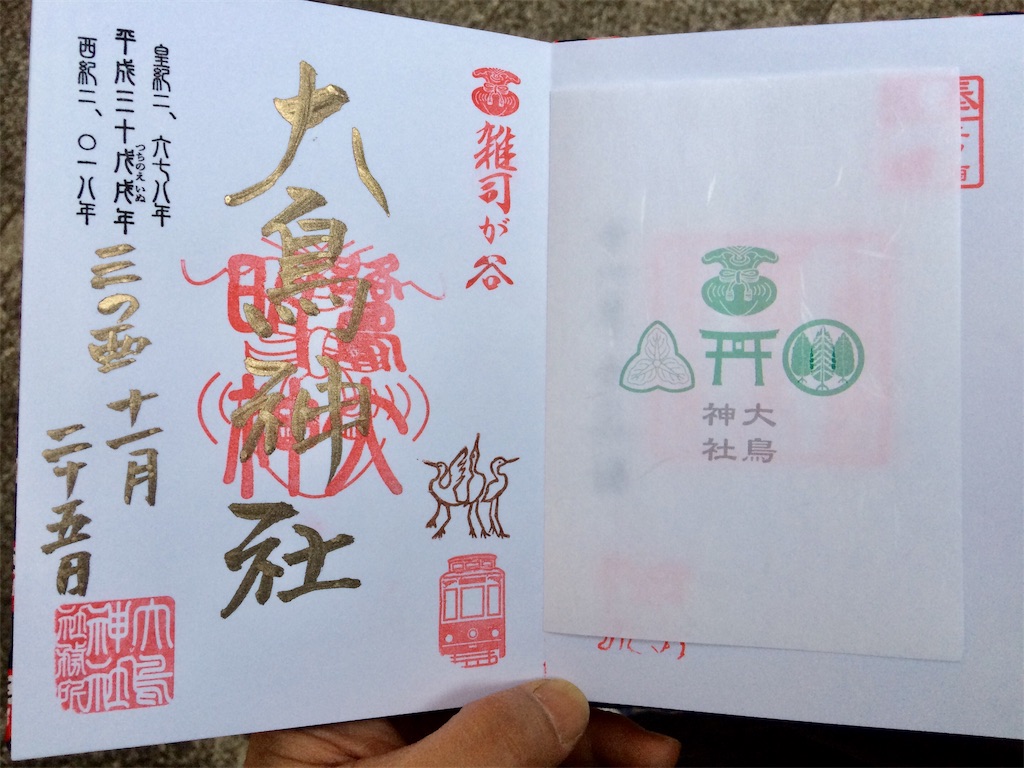 大鳥
神社
雑司が谷
大鳥神社
皇紀二、六七八年
平成三十戊戌年
つちのえいぬ
西紀二、〇一八年
三の酉 十一月
二十五日
大鳥
神社
社務所